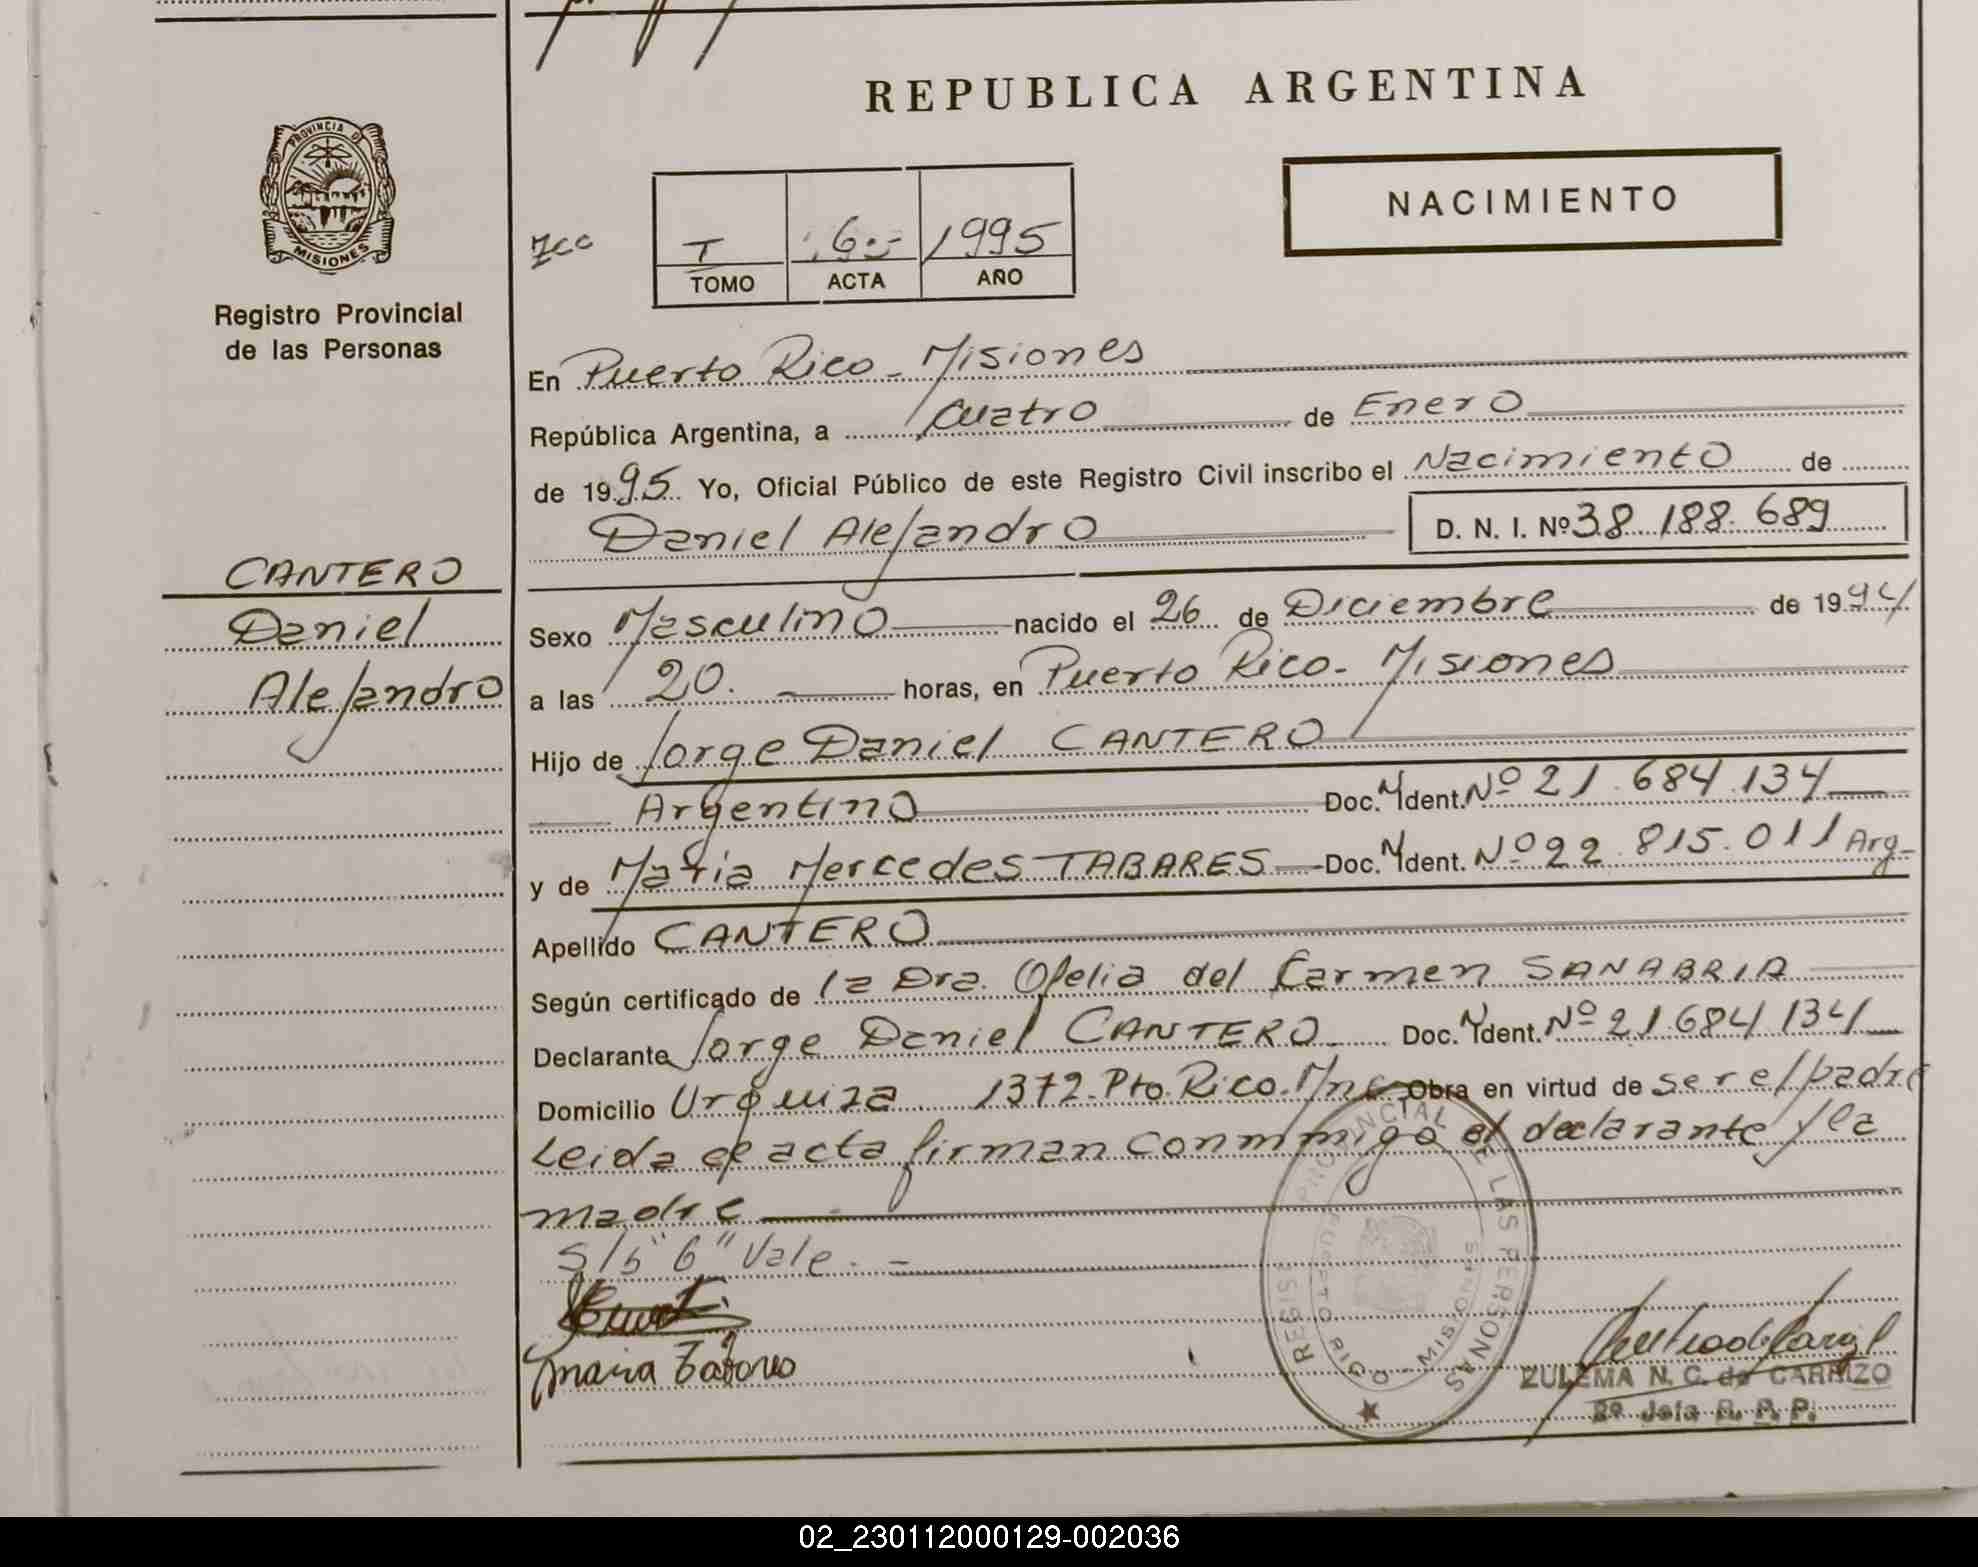 REPUBLICA ARGENTINA
PROVINCIA DE
MISIONES
Registro Provincial
de las Personas
NACIMIENTO
T 6.- 1995
TOMO ACTA AÑO
En Puerto Rico - Misiones
República Argentina, a Cuatro de Enero
de 1995 Yo, Oficial Público de este Registro Civil inscribo el Nacimiento de
Daniel Alejandro D. N. I. Nº 38.188.689
CANTERO
Daniel
Alejandro
Sexo Masculino nacido el 26 de Diciembre de 1994
a las 20. horas, en Puerto Rico - Misiones
Hijo de Jorge Daniel CANTERO
Argentino Doc. N Ident. Nº 21.684.134
y de Maria Mercedes TABARES Doc. N Ident. Nº 22.815.011 Arg-
Apellido CANTERO
Según certificado de la Dra. Ofelia del Carmen SANABRIA
Declarante Jorge Daniel CANTERO Doc. N Ident. Nº 21.684.134
Domicilio Urquiza 1372. Pto. Rico. Mnes Obra en virtud de ser el padre
Leida el acta firman conmmigo el declarante y la
madre
S/b "6" Vale. -
Maria Tabares
REGISTRO PROVINCIAL DE LAS PERSONAS
PUERTO RICO - MISIONES
ZULEMA N. C. de CARRIZO
2º Jefa R. P. P.
02_230112000129-002036